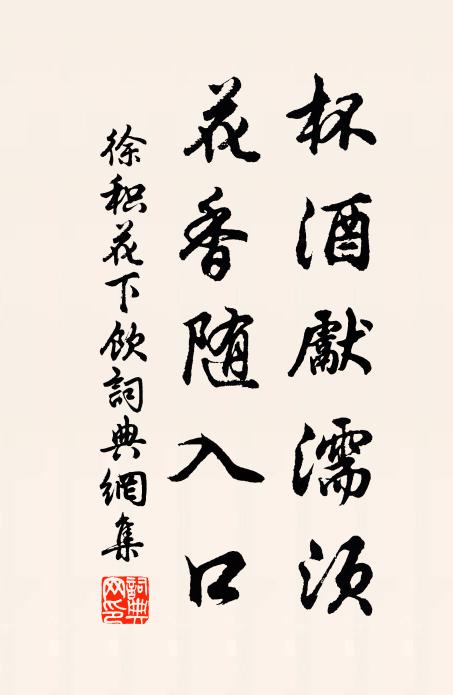 杯酒獻濡須
花香随入口
徐积花下飲詞典網集
詞典网印